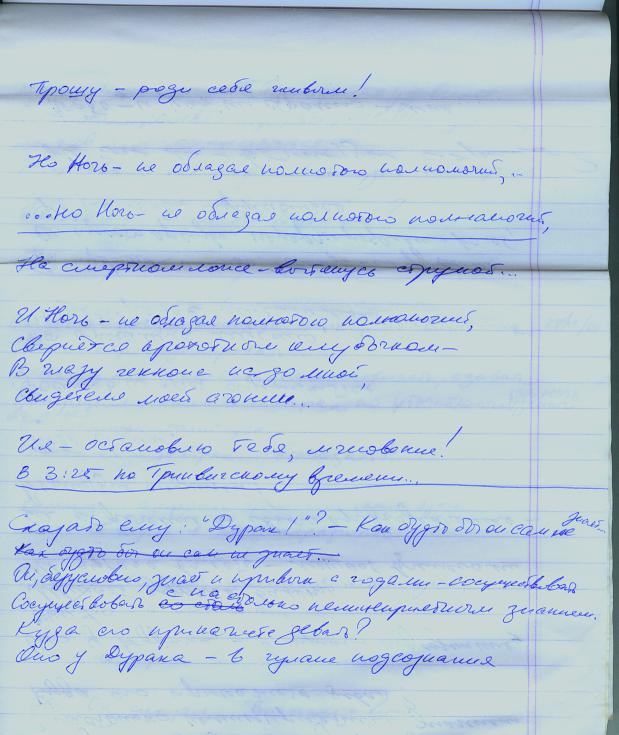 Прошу – роди себя живым!
Но Ночь – не обладая полнотою полномочий,..
...но Ночь – не обладая полнотою полномочий,
На смертном ложе – вытянусь струной...
И Ночь – не обладая полнотою полномочий,
Свернётся крохотным клубочком –
В глазу геккона надо мной,
Свидетеля моей агонии...
И я – остановлю тебя, мгновение!
в 3:25 по Гринвичскому времени...
Сказать ему: "Дурак!"? – Как будто бы он сам не знает...
Как будто бы он сам не знает...
Он, безусловно, знает и привык с годами – сосуществовать
Сосуществовать со столь с настолько неприметным знанием.
Куда его прикажете девать?
Оно у Дурака – в чулане подсознания